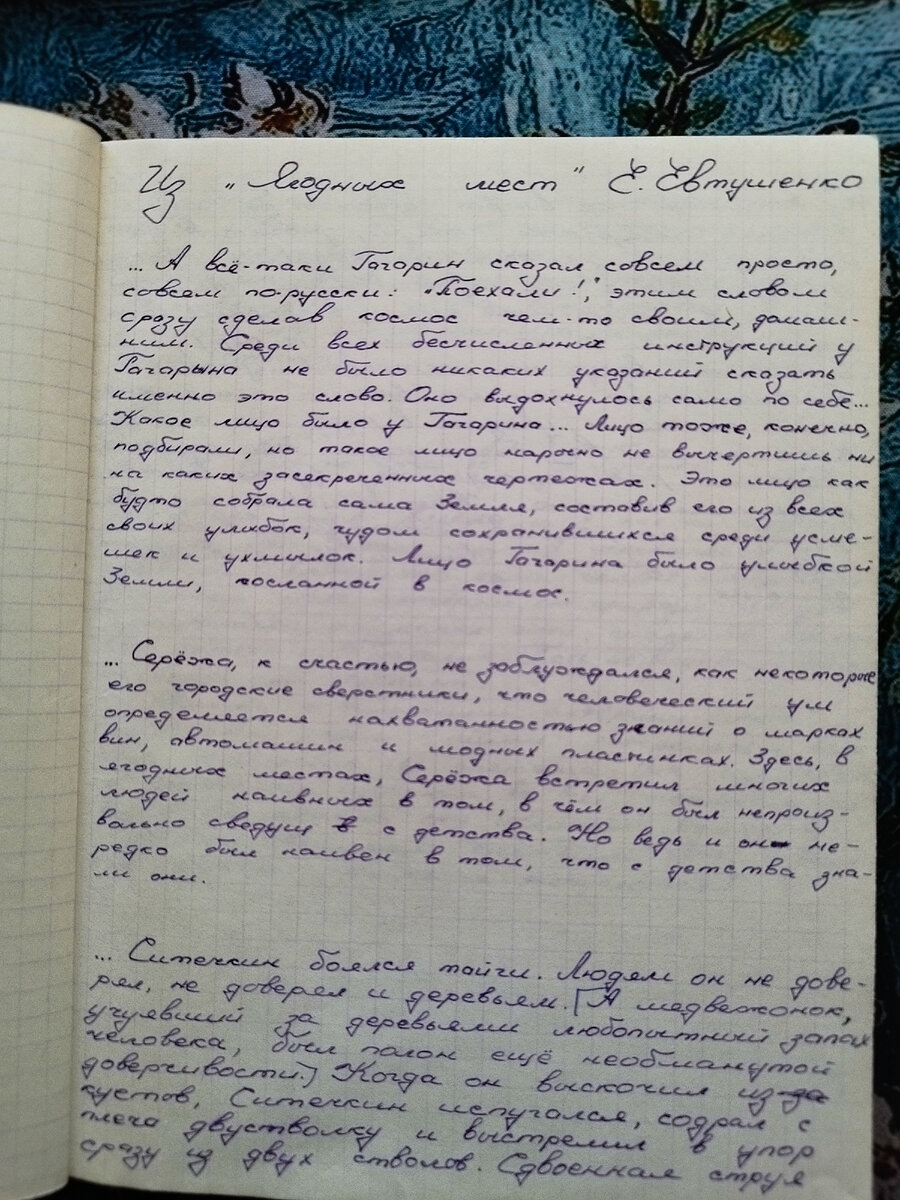 Из „Ягодных мест" Е. Евтушенко
... А всё-таки Гагарин сказал совсем просто,
совсем по-русски: „Поехали!", этим словом
сразу сделав космос чем-то своим, домаш-
ним. Среди всех бесчисленных инструкций у
Гагарына не было никаких указаний сказать
именно это слово. Оно выдохнулось само по себе...
Какое лицо было у Гагарина... Лицо тоже, конечно,
подбирали, но такое лицо нарочно не вычертишь ни
на каких засекреченных чертежах. Это лицо как
будто собрала сама Земля, составив его из всех
своих улыбок, чудом сохранившихся среди усме-
шек и ухмылок. Лицо Гагарина было улыбкой
Земли, посланной в космос.
... Серёжа, к счастью, не заблуждался, как некоторые
его городские сверстники, что человеческий ум
определяется нахватанностью знаний о марках
вин, автомашин и модных пластинках. Здесь, в
ягодных местах, Серёжа встретил многих
людей наивных в том, в чём он был непроиз-
вольно сведущ с детства. Но ведь и он не-
редко был наивен в том, что с детства зна-
ли они.
... Ситечкин боялся тайги. Людям он не дове-
рял, не доверял и деревьям. [А медвежонок,
учуявший за деревьями любопытный запах
человека, был полон ещё необманутой
доверчивости.] Когда он выскочил из-за
кустов, Ситечкин испугался, содрал с
плеча двустволку и выстрелил в упор
сразу из двух стволов. Сдвоенная струя